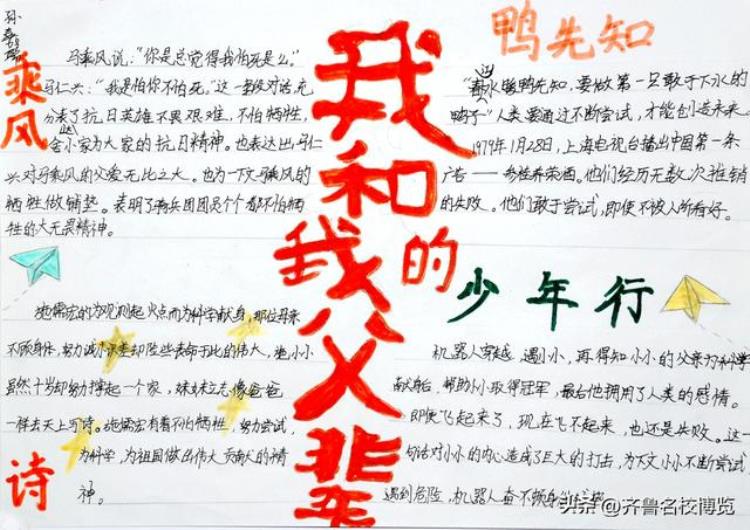 孙
乘风
马乘风说："你是总觉得我怕死是么。"
马仁兴："我是怕你不怕死。"这一段对话，充
分表了抗日英雄不畏艰难，不怕牺牲，
舍小家为大家的抗日精神。也表达出马仁
兴对马乘风的父爱无比之大。也为下文马乘风的
牺牲做铺垫。表明了骑兵团团员个个都不怕牺
牲的大无畏精神。
我和我的父辈
鸭先知
春水暖鸭先知，要做第一只敢于下水的
鸭子"人类要通过不断尝试，才能创造未来
1979年1月28日，上海电视台播出中国第一条
广告——参桂养荣酒。他们经历无数次推销
的失败。他们敢于尝试，即使不被人所看好。
诗
施儒宏的为观测起火点而为科学献身，那位母亲
不顾身体，努力
虽然十岁却努力撑起一个家，妹妹立志像爸爸
一样去天上写诗。施儒宏有着不怕牺牲，努力尝试，
为科学，为祖国做出伟大贡献的精
神。
少年行
机器人穿越遇小小，再得知小小的父亲为科学
献身后，帮助小小取得冠军，最后他拥用了人类的感情。
即使飞起来了，现在飞不起来，也还是失败。这一
句话对小小的内心造成了巨大的打击，为下文小小不断尝试
遇到危险，机器人奋不顾身
头条@齐鲁名校博览